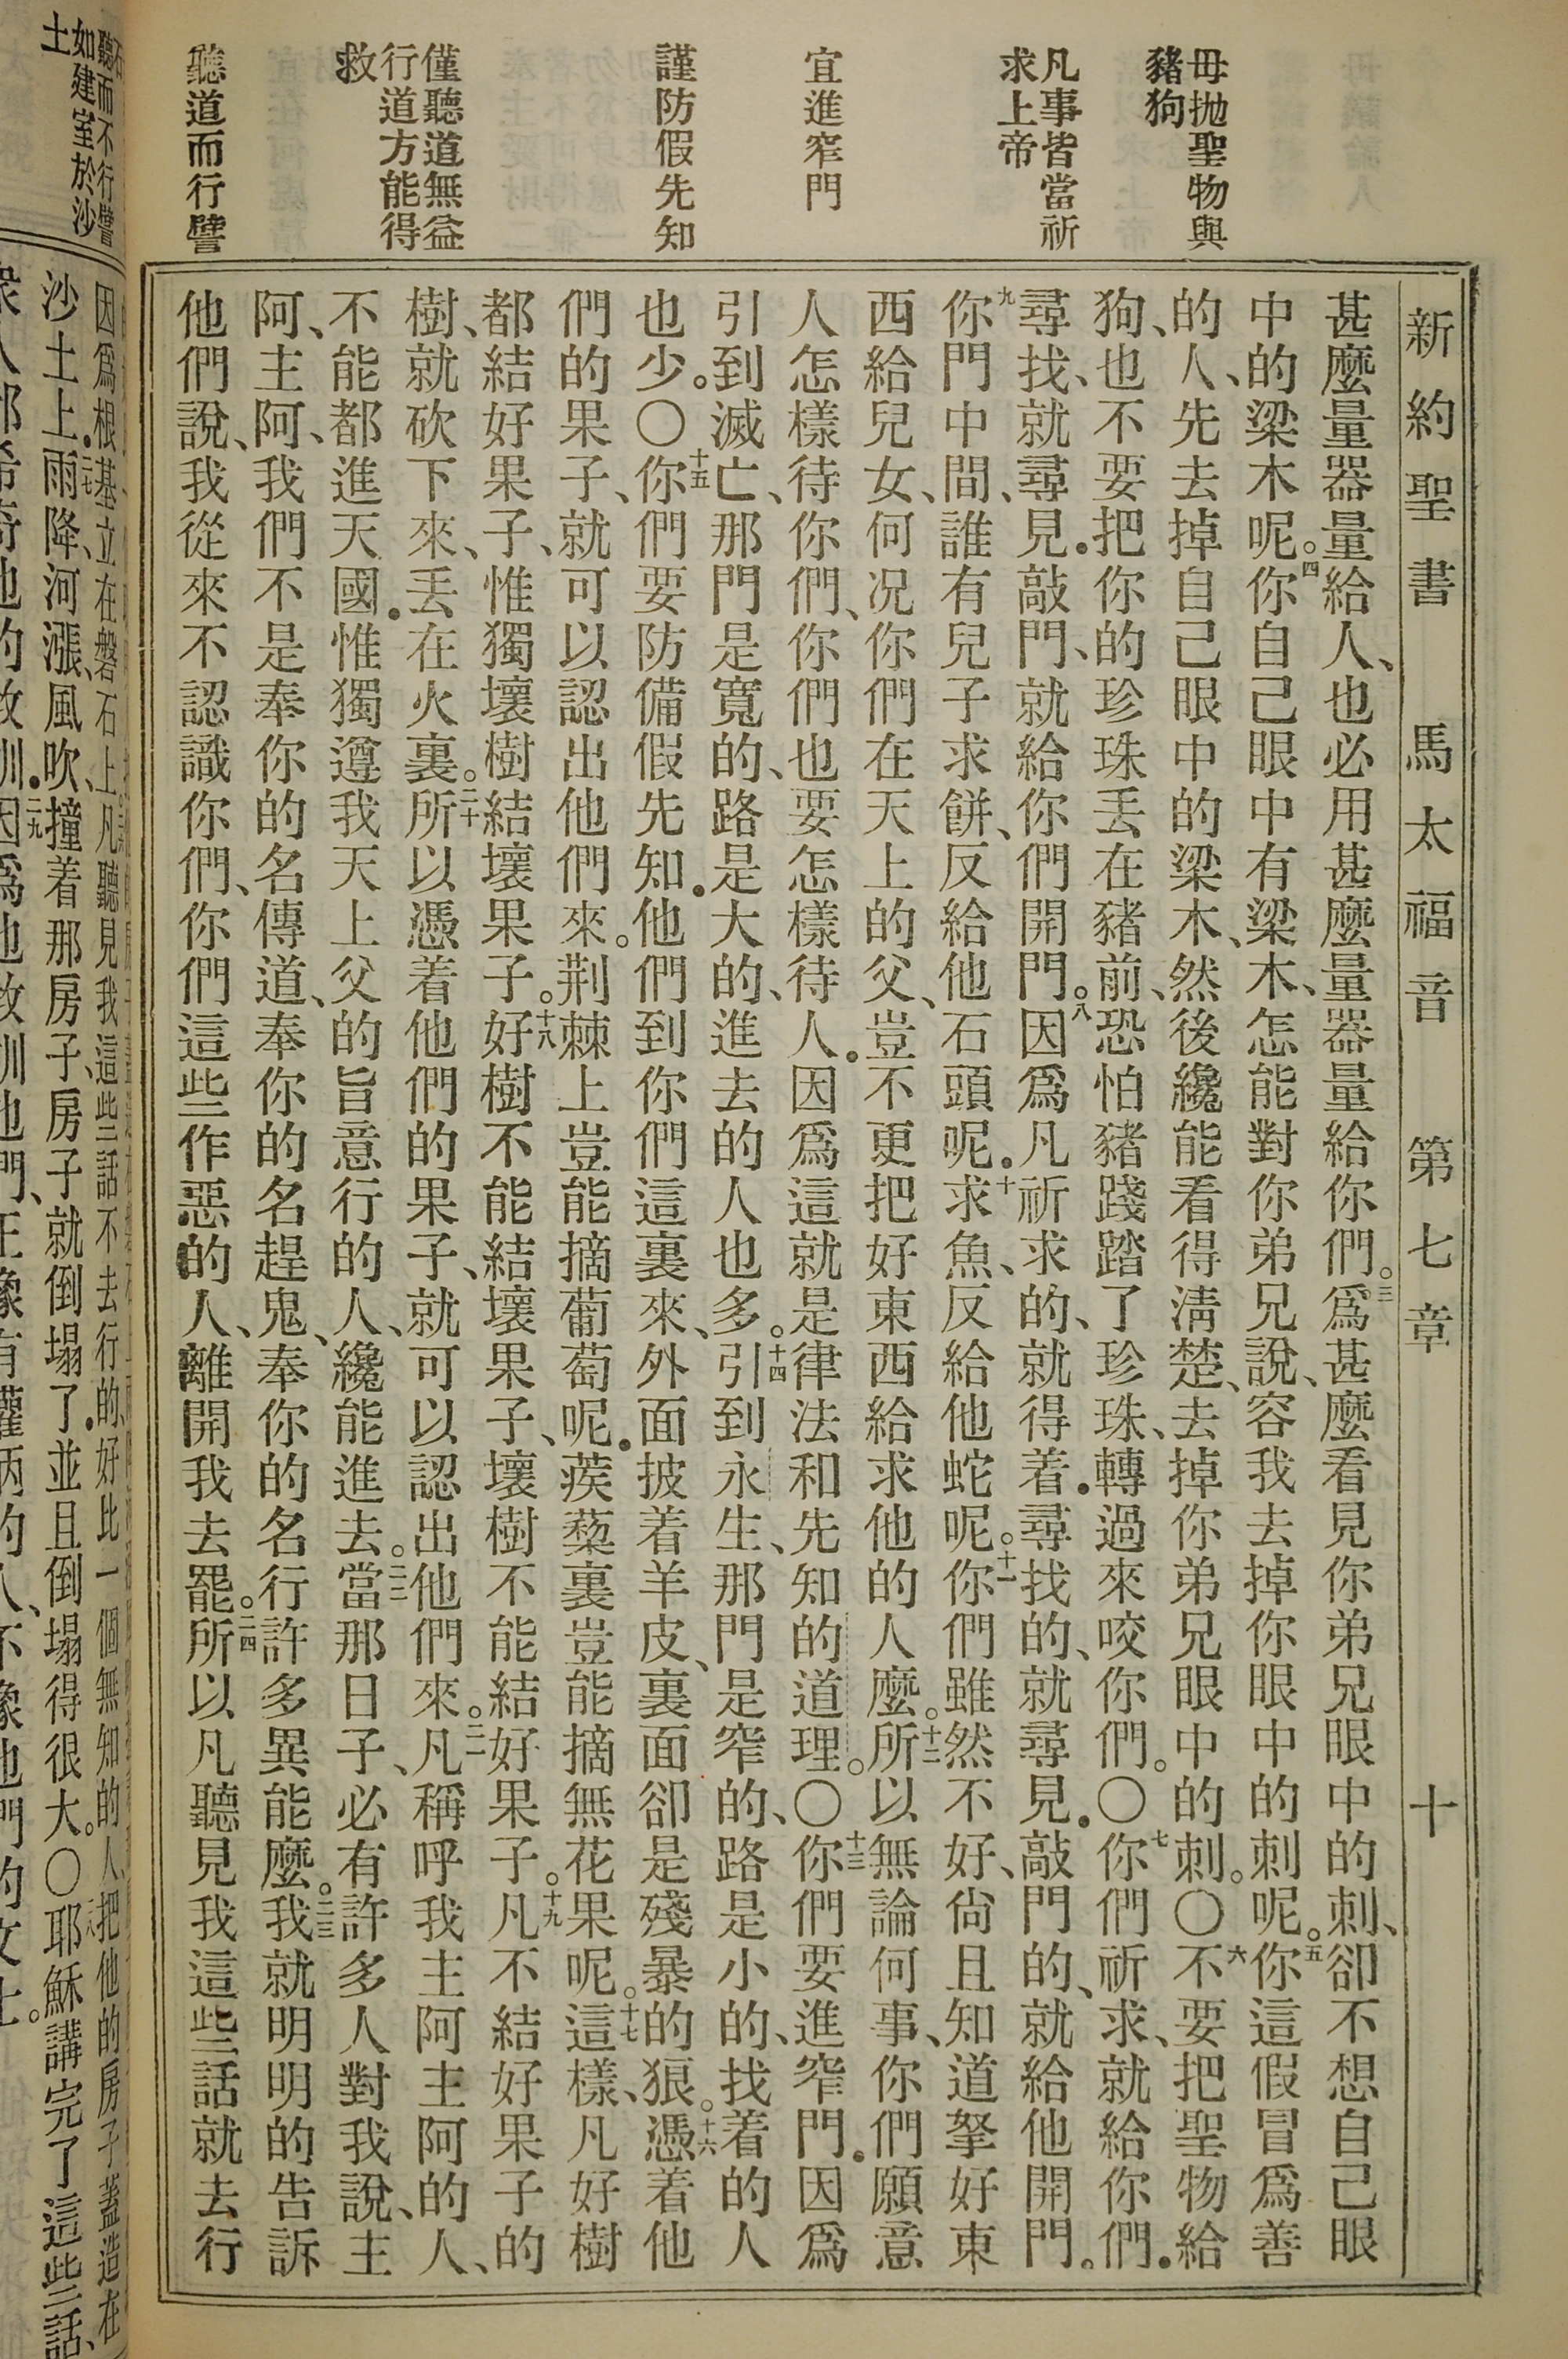 新約聖書 馬太福音 第七章 十
毋拋聖物與
豬狗
凡事皆當祈
求上帝
宜進窄門
謹防假先知
僅聽道無益
行道方能得
救
聽道而行譬
甚麼量器量給人、也必用甚麼量器量給你們。三爲甚麼看見你弟兄眼中的刺、卻不想自己眼
中的梁木呢。四你自己眼中有梁木、怎能對你弟兄說、容我去掉你眼中的刺呢。五你這假冒爲善
的人、先去掉自己眼中的梁木、然後纔能看得清楚、去掉你弟兄眼中的刺。〇六不要把聖物給
狗、也不要把你的珍珠丟在豬前、恐怕豬踐踏了珍珠、轉過來咬你們。〇七你們祈求、就給你們．
尋找、就尋見．敲門、就給你們開門。八因爲凡祈求的、就得着．尋找的、就尋見．敲門的、就給他開門。
九你門中間、誰有兒子求餅、反給他石頭呢．十求魚、反給他蛇呢。十一你們雖然不好、尙且知道拏好東
西給兒女、何況你們在天上的父、豈不更把好東西給求他的人麼。十二所以無論何事、你們願意
人怎樣待你們、你們也要怎樣待人．因爲這就是律法和先知的道理。〇十三你們要進窄門．因爲
引到滅亡、那門是寬的、路是大的、進去的人也多。十四引到永生、那門是窄的、路是小的、找着的人
也少。〇十五你們要防備假先知．他們到你們這裏來、外面披着羊皮、裏面卻是殘暴的狼。十六憑着他
們的果子、就可以認出他們來。荆棘上豈能摘葡萄呢．蒺藜裏豈能摘無花果呢。十七這樣、凡好樹
都結好果子、惟獨壞樹結壞果子。十八好樹不能結壞果子、壞樹不能結好果子。十九凡不結好果子的
樹、就砍下來、丟在火裏。二十所以憑着他們的果子、就可以認出他們來。二一凡稱呼我主阿主阿的人、
不能都進天國．惟獨遵我天上父的旨意行的人、纔能進去。二二當那日子、必有許多人對我說、主
阿、主阿、我們不是奉你的名傳道、奉你的名趕鬼、奉你的名行許多異能麼。二三我就明明的告訴
他們說、我從來不認識你們、你們這些作惡的人、離開我去罷。二四所以凡聽見我這些話就去行
聽而不行譬
如建室於沙
土
因爲根基立在磐石上。凡聽見我這些話不去行的、好比一個無知的人、把他的房子蓋造在
沙土上．二七雨降、河漲、風吹、撞着那房子、房子就倒塌了．並且倒塌得很大。〇二八耶穌講完了這些話、